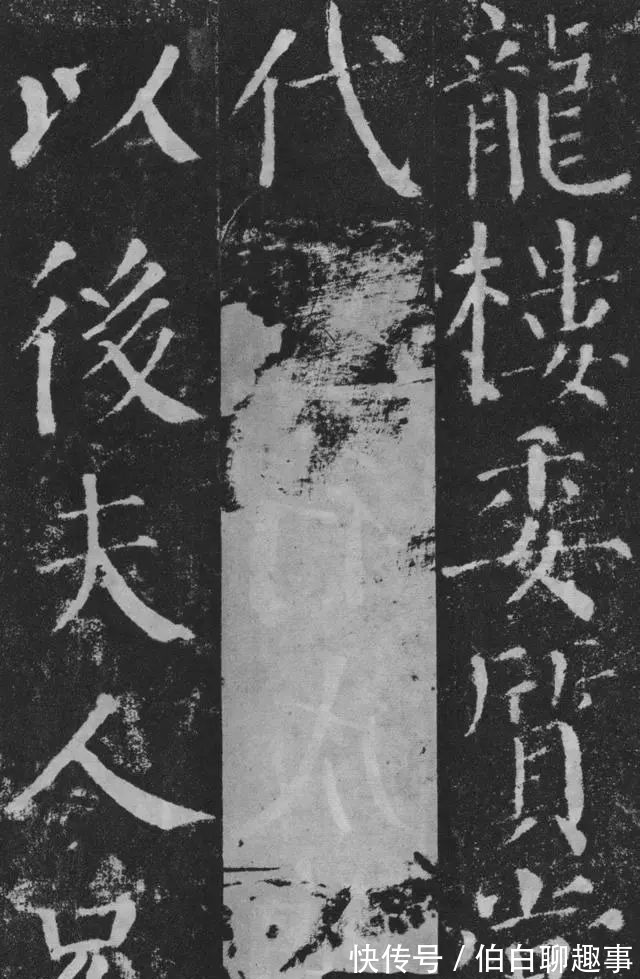 龍樓委質
代
以後夫人
快传号 / 伯白聊趣事